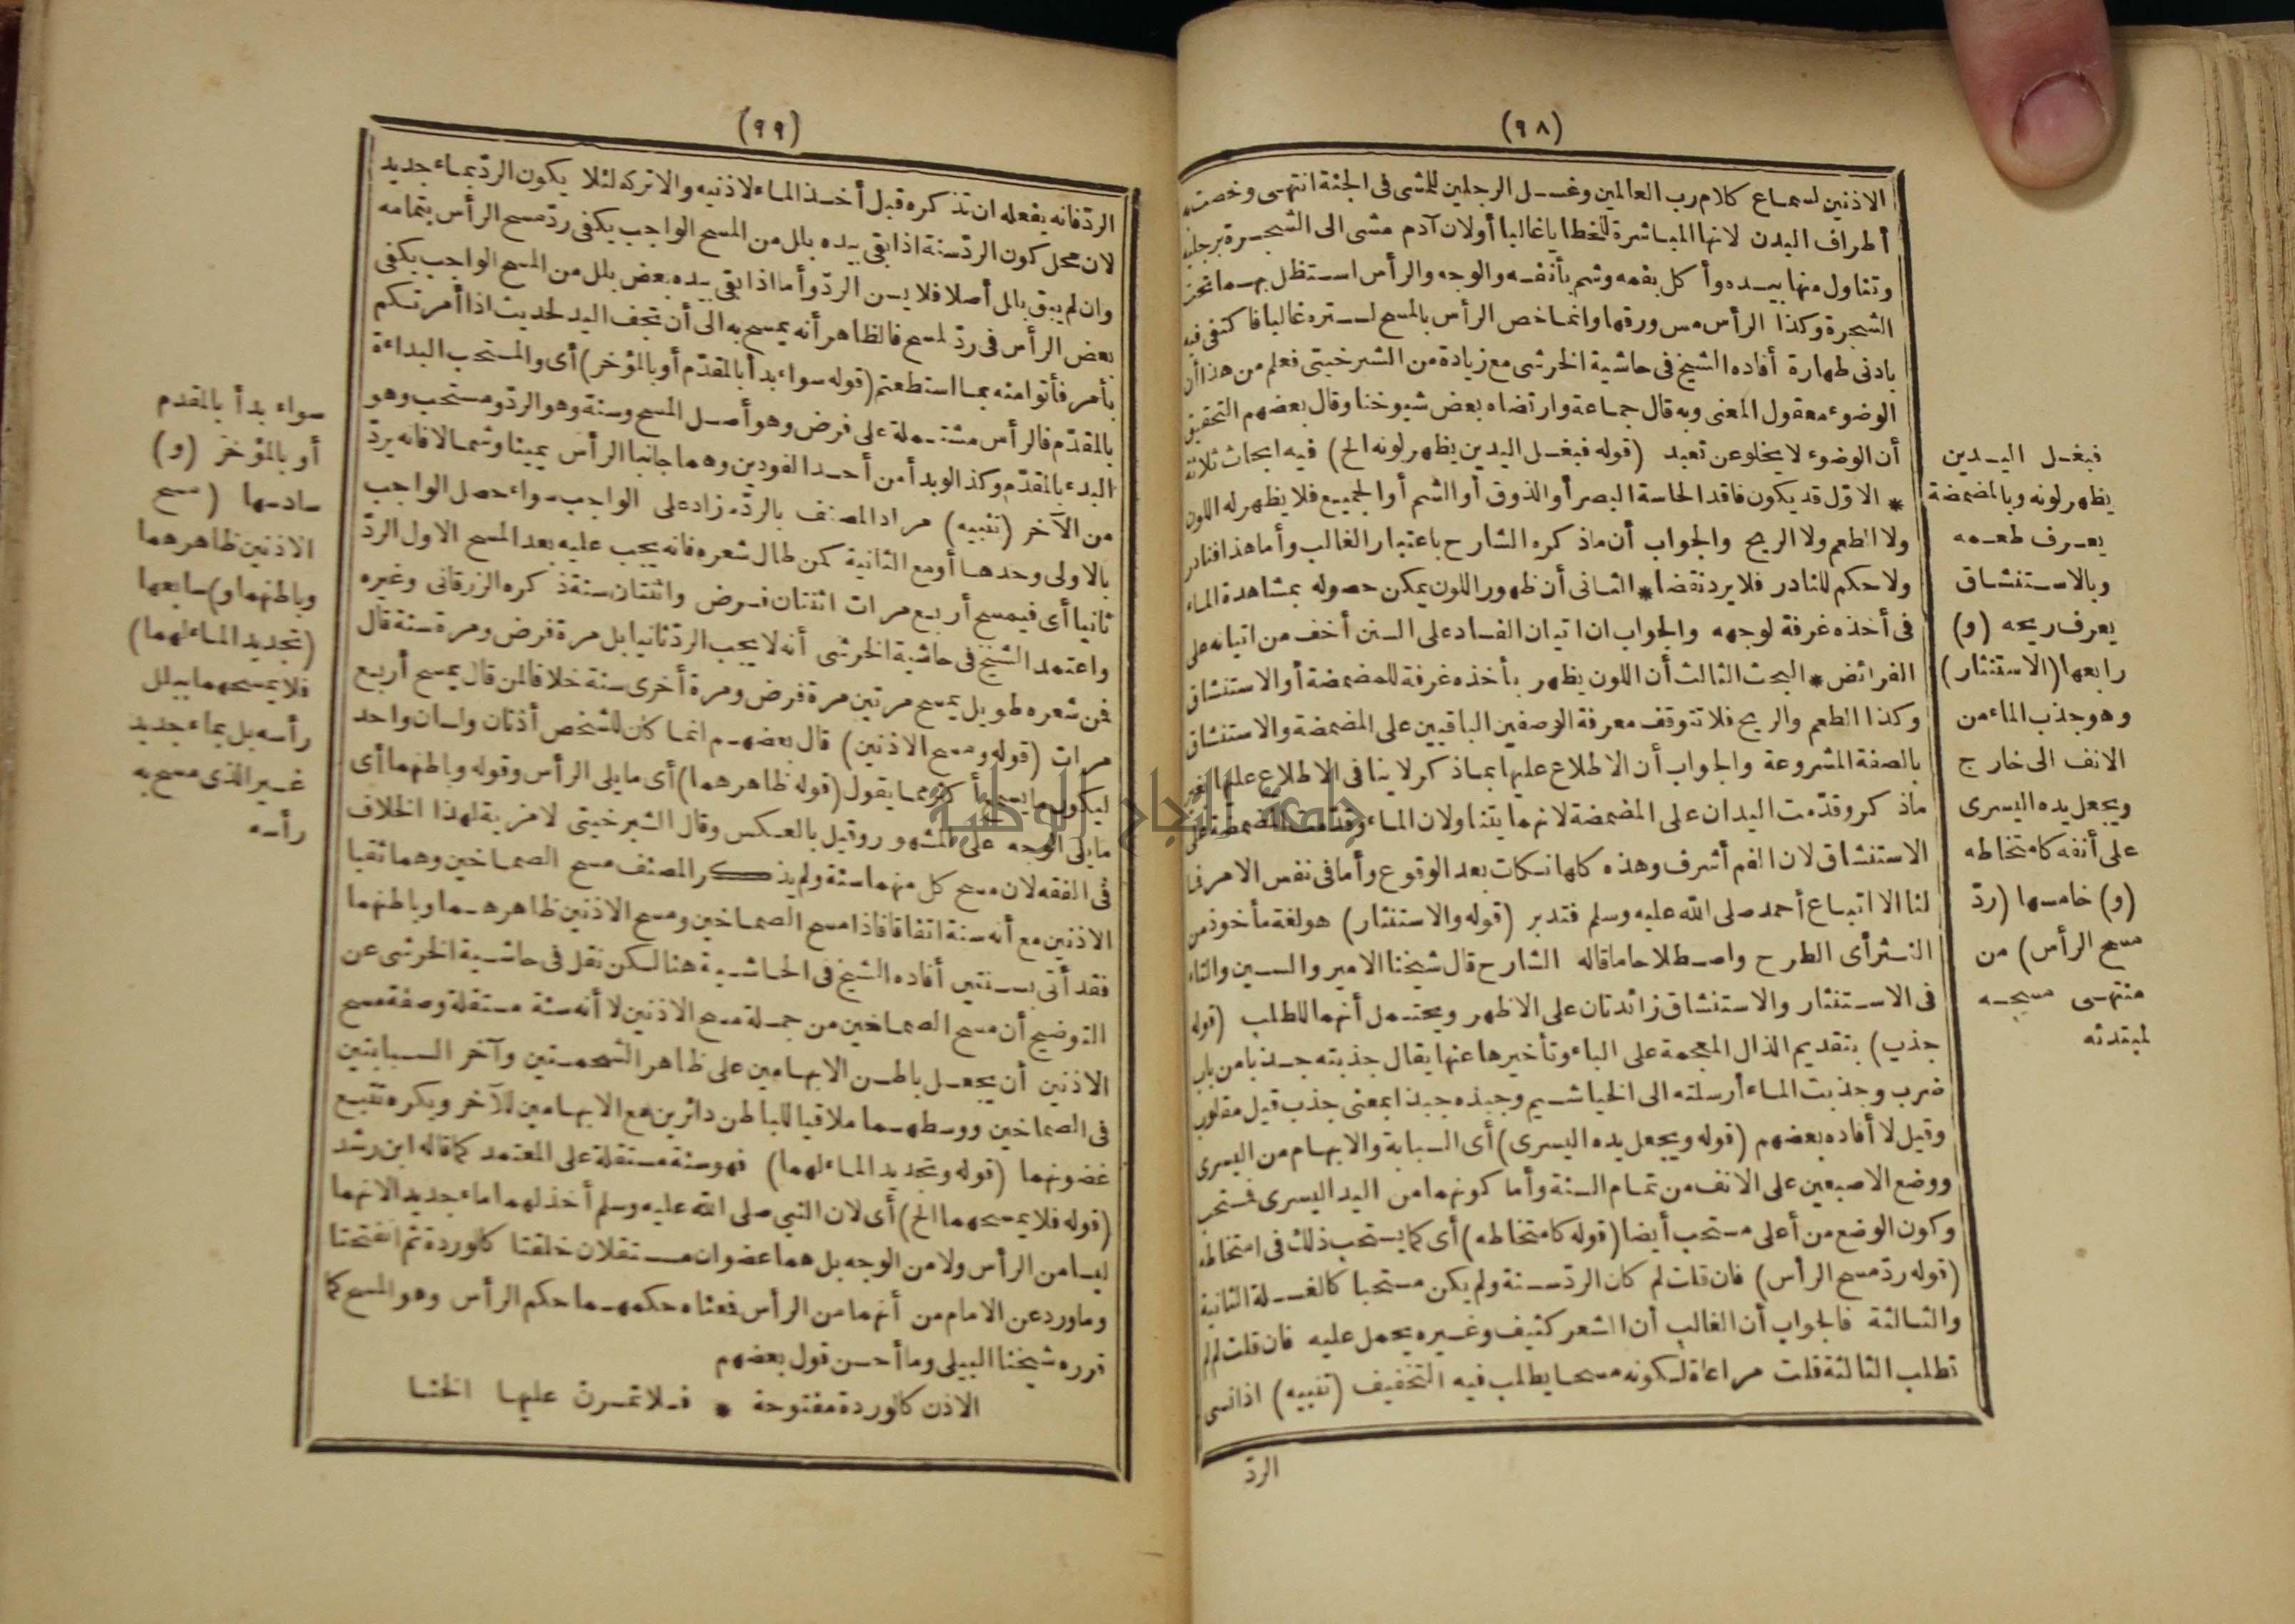 (٩٨)
الاذنين لسماع كلام رب العالمين وغسل الرجلين للمشى فى الجنة انتهى وخصت
أطراف البدن لانها المباشرة للخطايا غالبا أو لان آدم مشى الى الشجرة برجليه
وتناول منها بيده وأكل بفمه وشم بأنفه والوجه والرأس استظل بهما تحت
الشجرة وكذا الرأس مس ورقها وانما خص الرأس بالمسح لستره غالبا فاكتفى فيه
بادنى طهارة أفاده الشيخ فى حاشية الخرشى مع زيادة من الشبرخيتى فعلم من هذا أن
الوضوء معقول المعنى وبه قال جماعة وارتضاه بعض شيوخنا وقال بعضهم التحقيق
أن الوضوء لا يخلو عن تعبد (قوله فبغسل اليدين يظهر لونه الخ) فيه ابحاث ثلاثة
* الاوّل قد يكون فاقد الحاسة البصر أو الذوق أو الشم أو الجميع فلا يظهر له اللون
ولا الطعم ولا الريح والجواب أن ماذكره الشارح باعتبار الغالب وأما هذا فنادر
ولا حكم للنادر فلا يرد نقضا * الثانى أن ظهور اللون يمكن حصوله بمشاهدة الماء
فى أخذه غرفة لوجهه والجواب ان اتيان الفساد على السنن أخف من اتيانه على
الفرائض * البحث الثالث أن اللون يظهر بأخذه غرفة للمضمضة أو الاستنشاق
وكذا الطعم والريح فلا تتوقف معرفة الوصفين الباقيين على المضمضة والاستنشاق
بالصفة المشروعة والجواب أن الاطلاع عليها بماذكر لا ينافى الاطلاع عليها بغير
ماذكر وقدّمت اليدان على المضمضة لانهما يتناولان الماء وقدّمت المضمضة على
الاستنشاق لان الفم أشرف وهذه كلها نكات بعد الوقوع وأما فى نفس الامر فما
لنا الا اتباع أحمد صلى الله عليه وسلم فتدبر (قوله والاستنثار) هو لغة مأخوذ من
النثر أى الطرح واصطلاحا ما قاله الشارح قال شيخنا الامير والسين والتاء
فى الاستنثار والاستنشاق زائدتان على الاظهر ويحتمل أنهما للطلب (قوله
جذب) بتقديم الذال المعجمة على الباء وتأخيرها عنها يقال جذبته جذبا من باب
ضرب وجذبت الماء أرسلته الى الخياشيم وجبذه جبذا بمعنى جذب قيل مقلوب
وقيل لا أفاده بعضهم (قوله ويجعل يده اليسرى) أى السبابة والابهام من اليسرى
ووضع الاصبعين على الانف من تمام السنة وأما كونهما من اليد اليسرى فمستحب
وكون الوضع من أعلى مستحب أيضا (قوله كامتخاطه) أى كما يستحب ذلك فى امتخاطه
(قوله ردّ مسح الرأس) فان قلت لم كان الردّ سنة ولم يكن مستحبا كالغسلة الثانية
والثالثة فالجواب أن الغالب أن الشعر كثيف وغيره يحمل عليه فان قلت لم لم
تطلب الثالثة قلت مراعاة لكونه مسحا يطلب فيه التخفيف (تنبيه) اذا نسى
الردّ
فبغسل اليدين
يظهر لونه وبالمضمضة
يعرف طعمه
وبالاستنشاق
يعرف ريحه (و)
رابعها (الاستنثار)
وهو جذب الماء من
الانف الى خارج
ويجعل يده اليسرى
على أنفه كامتخاطه
(و) خامسها (ردّ
مسح الرأس) من
منتهى مسحه
لمبتدئه
(٩٩)
الردّ فانه يفعله ان تذكره قبل أخذ الماء لاذنيه والا تركه لئلا يكون الردّ بماء جديد
لان محل كون الردّ سنة اذا بقى بيده بلل من المسح الواجب يكفى ردّ مسح الرأس بتمامه
وان لم يبق بلل أصلا فلا يسن الردّ وأما اذا بقى بيده بعض بلل من المسح الواجب يكفى
بعض الرأس فى ردّ لمسح فالظاهر أنه يمسح به الى أن تجف اليد لحديث اذا أمرتكم
بأمر فأتوا منه بما استطعتم (قوله سواء بدأ بالمقدّم أو بالمؤخر) أى والمستحب البداءة
بالمقدّم فالرأس مشتملة على فرض وهو أصل المسح وسنة وهو الردّ ومستحب وهو
البدء بالمقدّم وكذا لو بدأ من أحد الفودين وهما جانبا الرأس يمينا وشمالا فانه يردّ
من الآخر (تنبيه) مراد المصنف بالردّ ما زاد على الواجب سواء حصل الواجب
بالاولى وحدها أو مع الثانية كمن طال شعره فانه يجب عليه بعد المسح الاول الردّ
ثانيا أى فيمسح أربع مرات اثنتان فرض واثنتان سنة ذكره الزرقانى وغيره
واعتمد الشيخ فى حاشية الخرشى أنه لا يجب الردّ ثانيا بل مرة فرض ومرة سنة قال
فمن شعره طويل يمسح مرتين مرة فرض ومرة أخرى سنة خلافا لمن قال يمسح أربع
مرات (قوله ومسح الاذنين) قال بعضهم انما كان للشخص أذنان ولسان واحد
ليكون ما يسمع أكثر مما يقول (قوله ظاهرهما) أى ما يلى الرأس وقوله وباطنهما أى
ما يلى الوجه على المشهور وقيل بالعكس وقال الشبرخيتى لا مزية لهذا الخلاف
فى الفقه لان مسح كل منهما سنة ولم يذكر المصنف مسح الصماخين وهما ثقبا
الاذنين مع أنه سنة اتفاقا فاذا مسح الصماخين ومسح الاذنين ظاهرهما وباطنهما
فقد أتى بسنتين أفاده الشيخ فى الحاشية هنا لكن نقل فى حاشية الخرشى عن
التوضيح أن مسح الصماخين من جملة مسح الاذنين لا أنه سنة مستقلة وصفة مسح
الاذنين أن يجعل باطن الابهامين على ظاهر الشحمتين وآخر السبابتين
فى الصماخين ووسطهما ملاقيا للباطن دائرين مع الابهامين للآخر ويكره تتبع
غضونهما (قوله وتجديد الماء لهما) فهو سنة مستقلة على المعتمد كما قاله ابن رشد
(قوله فلا يمسحهما الخ) أى لان النبي صلى الله عليه وسلم أخذ لهما ماء جديدا لانهما
ليسا من الرأس ولا من الوجه بل هما عضوان مستقلان خلقتا كالوردة ثم انفتحتا
وما ورد عن الامام من أنهما من الرأس فمعناه حكمهما حكم الرأس وهو المسح كما
قرره شيخنا البيلى وما أحسن قول بعضهم
الاذن كالوردة مفتوحة * فلا تمرن عليها الخنا
سواء بدأ بالمقدم
أو بالمؤخر (و)
سادسها (مسح
الاذنين ظاهرهما
وباطنهما و) سابعها
(تجديد الماء لهما)
فلا يمسحهما ببلل
رأسه بل بماء جديد
غير الذى مسح به
رأسه
جامعة النجاح الوطنية